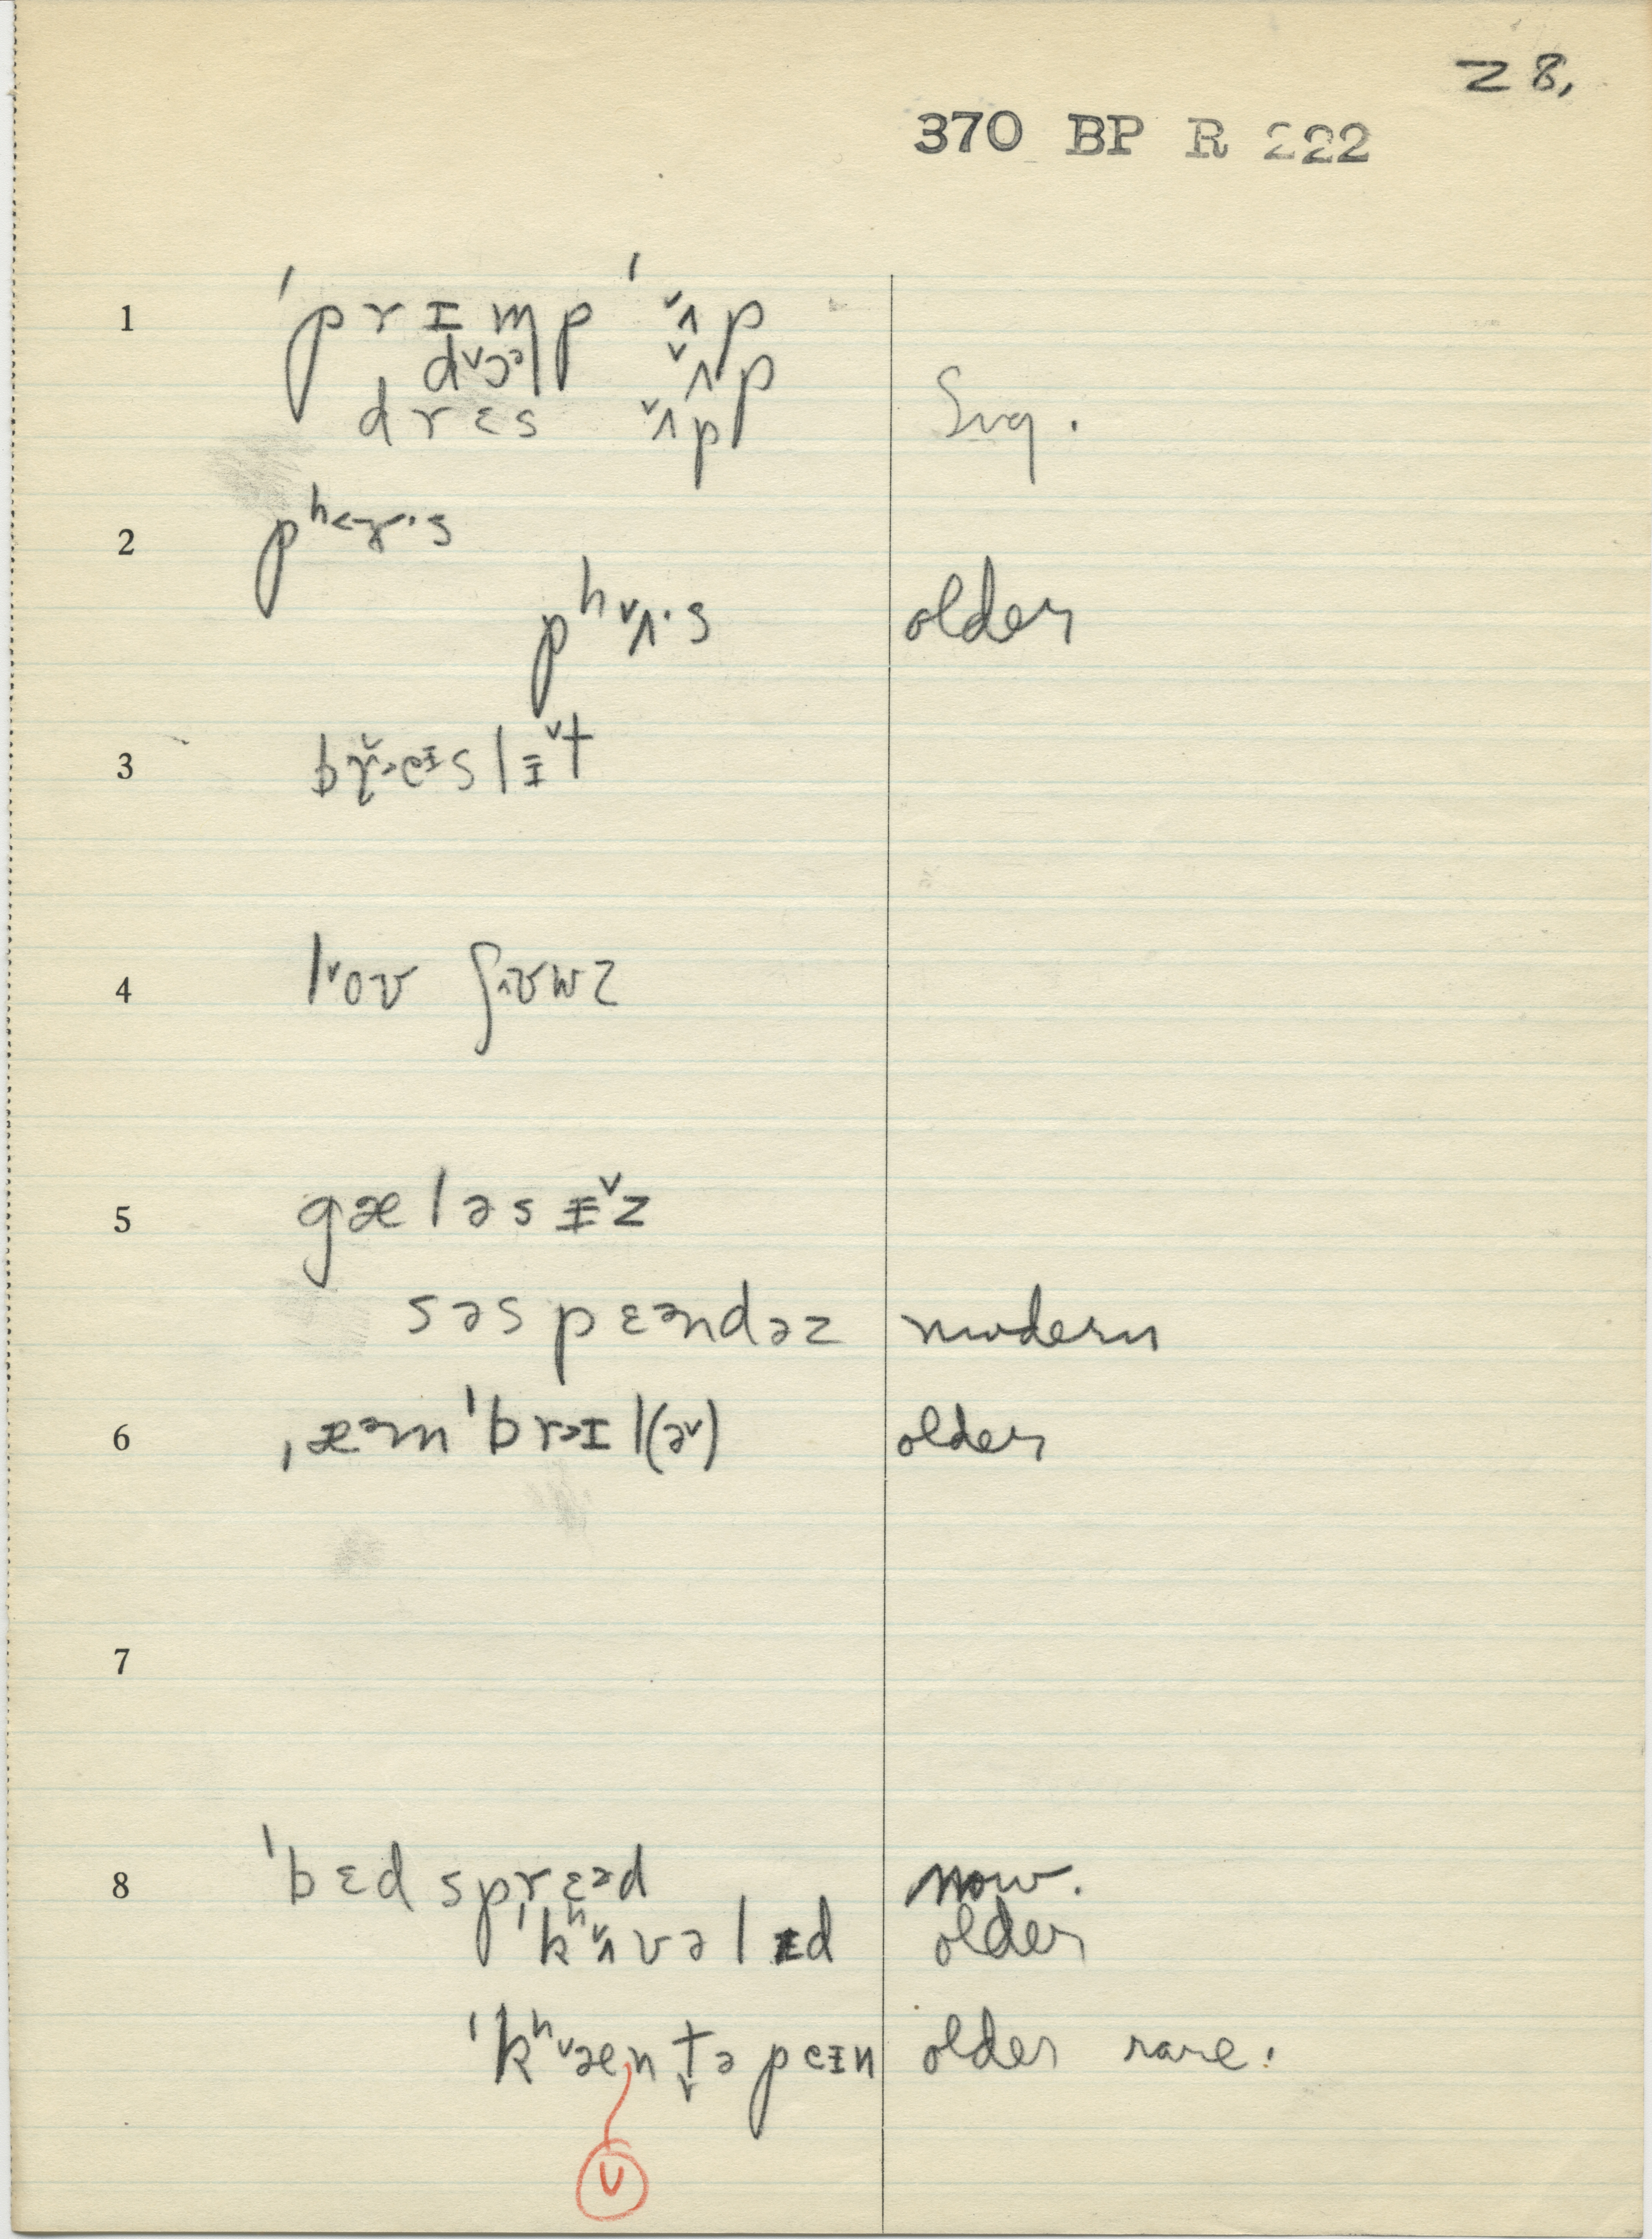 28.
370 BP R 222
1 ˈprɪmpˈ ʌ̌p
dᵛɔᵊl ᵛʌp
drɛs ʌ̌p Sug.
2
pʰᵛʌ·s older
3
4 lᵛoʊ ʃ
5 gæləsɪᵛz
səspɛəndəz modern
6 ˌæᵊmˈbrəɪl(əᵛ) older
7
8 ˈbɛdsprɛᵊd now.
ˈkʰʌ̌vəlɪd older
ˈkʰᵛæn t̬əpeɪn older rare.
v